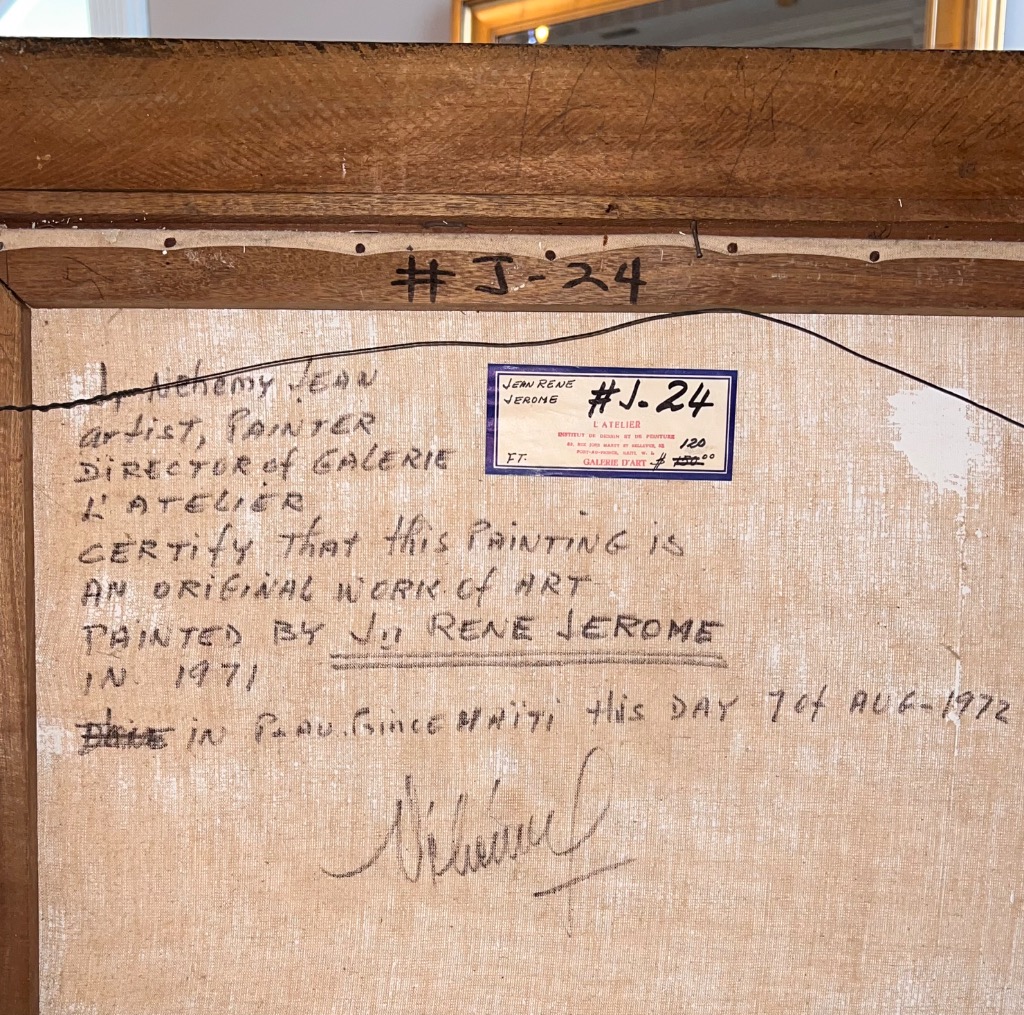 # J-24
I, Nehemy JEAN
artist, PAINTER
DIRECTOR of GALERIE
L'ATELIER
CERTIFY THAT this PAINTING is
AN ORIGINAL WORK of ART
PAINTED BY J,, RENE JEROME
IN 1971
IN P.AU.Prince HAÏTI this DAY 7 of AUG-1972
JEAN RENE
JEROME
#J-24
L'ATELIER
INSTITUT DE DESSIN ET DE PEINTURE
PORT-AU-PRINCE, HAITI, W. I.
120
F.T.
GALERIE D'ART $ 150.00